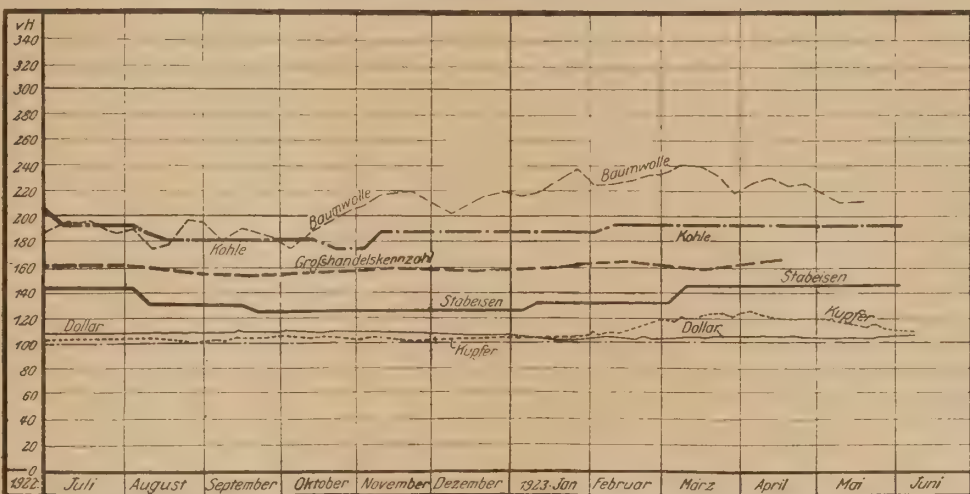 vH
340
320
300
280
260
240
220
200
180
160
140
120
100
80
60
40
20
0
Baumwolle
Baumwolle
Kohle
Kohle
Großhandelskennzahl
Stabeisen
Stabeisen
Dollar
Dollar
Kupfer
Kupfer
1922: Juli August September Oktober November Dezember 1923·Jan Februar März April Mai Juni